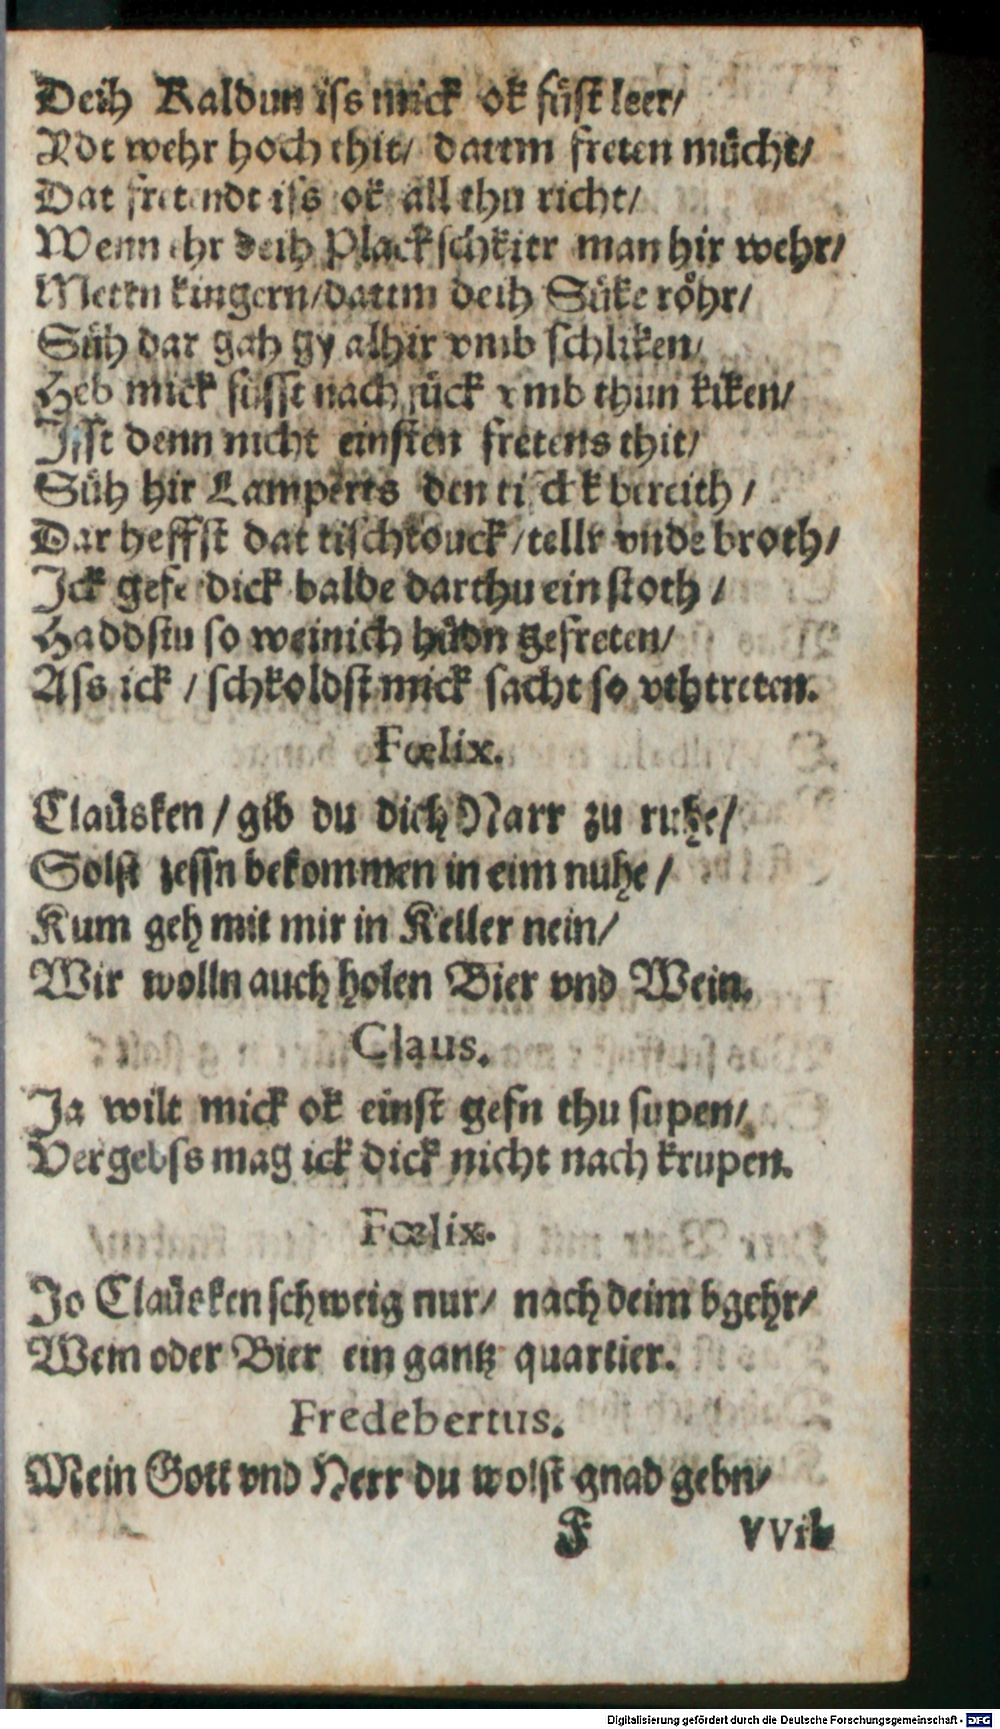 Deih Kaldun iss mick ok süst leer/
Idt wehr hoch thit/ dattm freten mücht/
Dat fretendt iss ok all thu richt/
Wenn ehr deih Plackschkitr man hir wehr/
Mettn kingern/dattm deih Süke röhr/
Süh dar gah gy alhir vmb schliken/
Heb mick süsst nach jück vmb thun kiken/
Jsst denn nicht einsten fretens thit/
Süh hir Lamperts den tisck bereith/
Dar heffst dat tischtouck/tellr vnde broth/
Jck gefe dick balde darthu ein stoth/
Haddstu so weinich hüdn gefreten/
Ass ick/ schkoldst mick sacht so vthtreten.
Fœlix.
Claüsken/ gib du dich Narr zu ruhe/
Solst zessn bekommen in eim nuhe/
Kum geh mit mir in Keller nein/
Wir wolln auch holen Bier vnd Wein.
Claus.
Ja wilt mick ok einst gefn thu supen/
Vergebss mag ick dick nicht nach krupen.
Fœlix.
Jo Claüsken schweig nur/ nach deim bgehr/
Wein oder Bier ein gantz quartier.
Fredebertus.
Mein Gott vnd Herr du wolst gnad gebn/
F VVil-
Digitalisierung gefördert durch die Deutsche Forschungsgemeinschaft - DFG